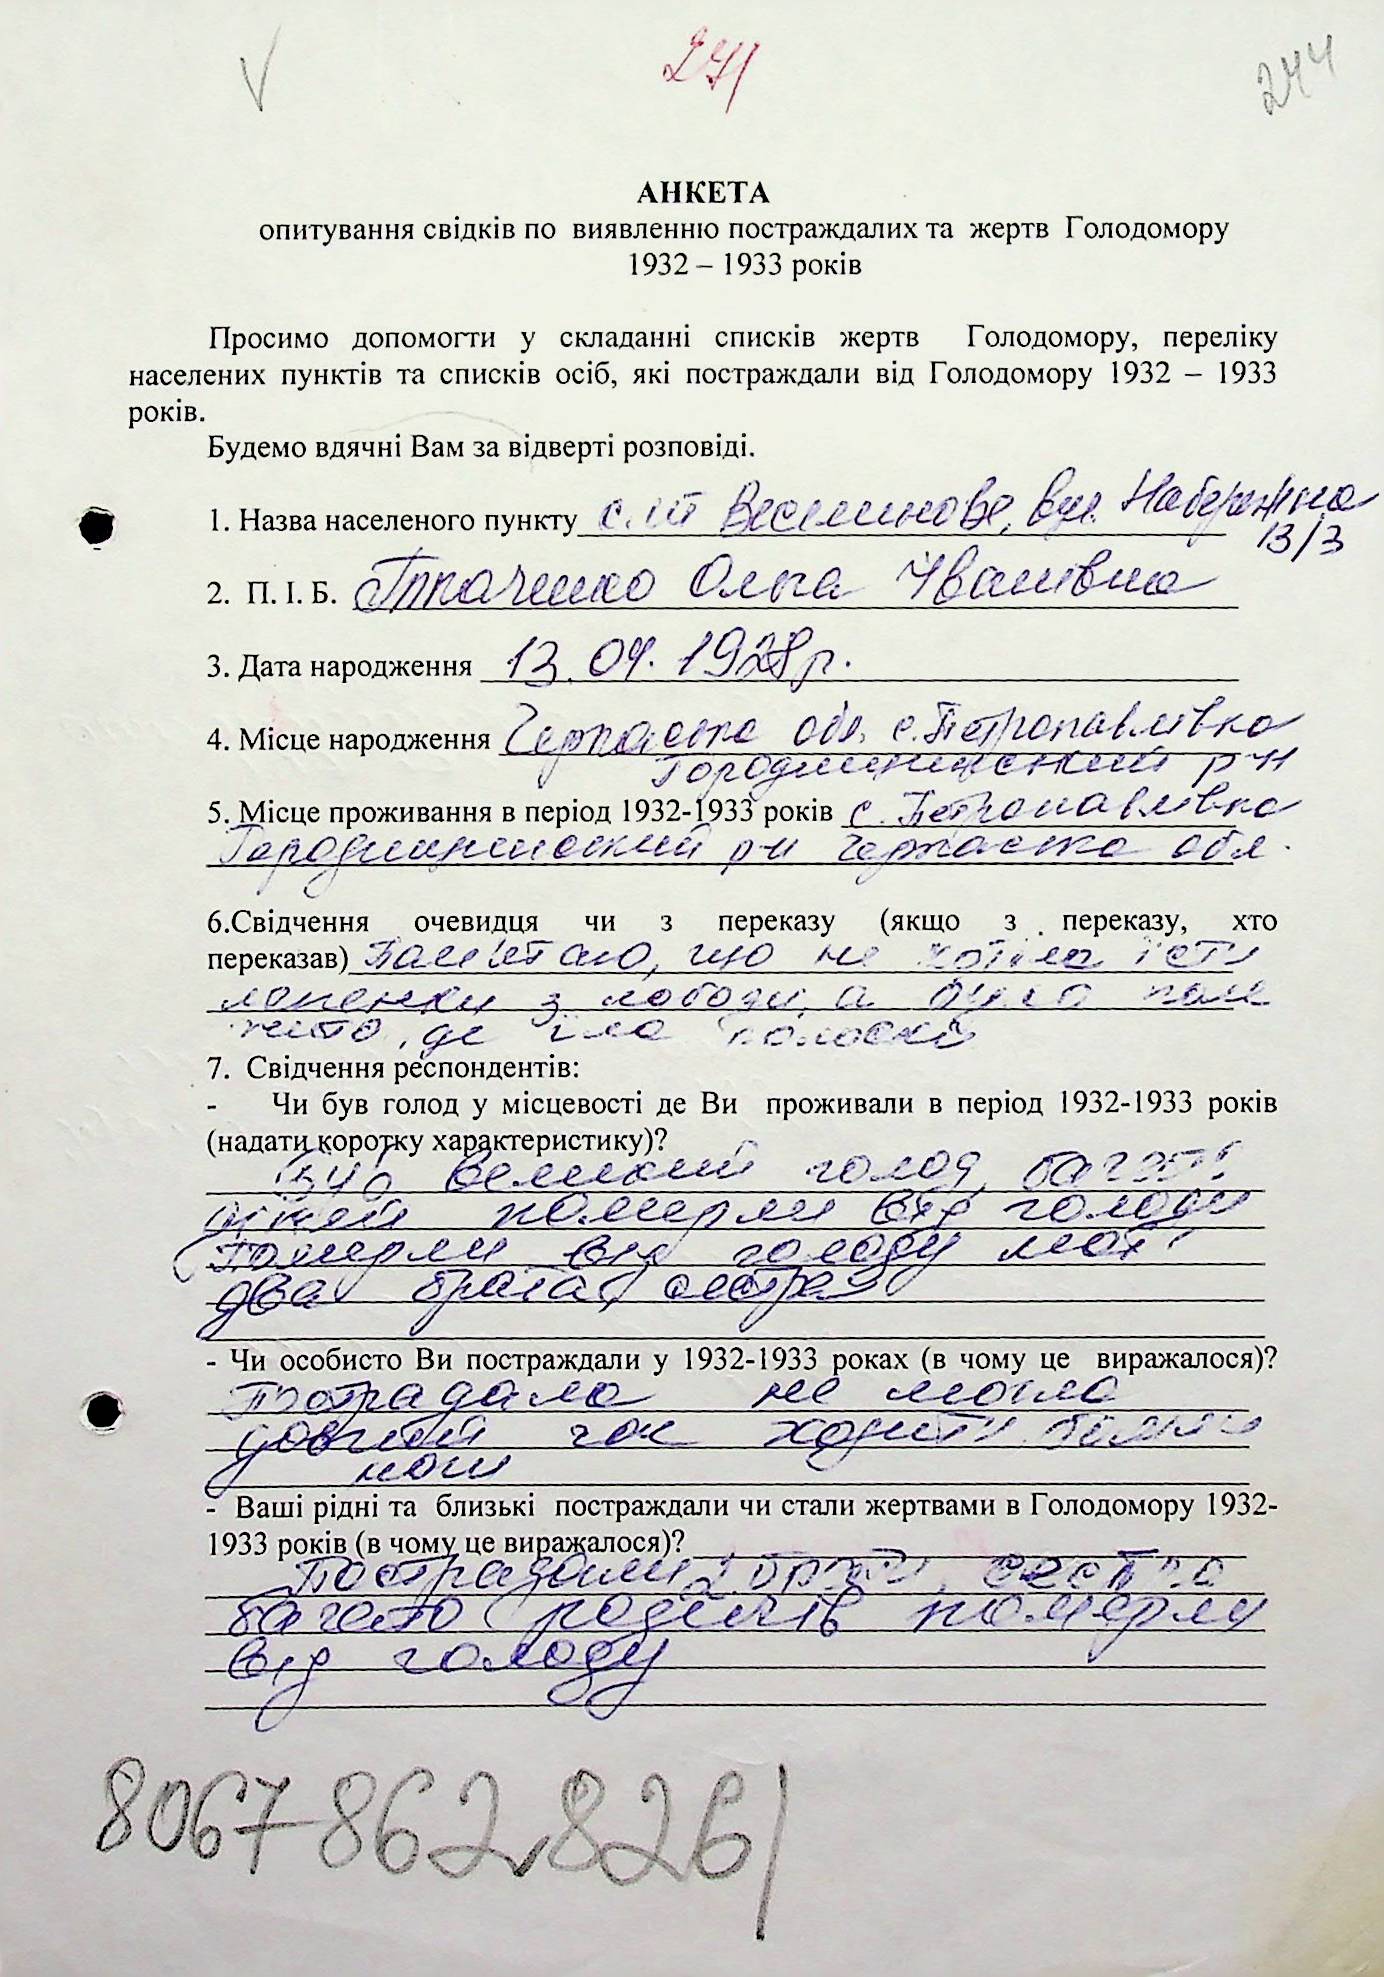 V
271
244
АНКЕТА
опитування свідків по виявленню постраждалих та жертв Голодомору
1932 – 1933 років
Просимо допомогти у складанні списків жертв Голодомору, переліку
населених пунктів та списків осіб, які постраждали від Голодомору 1932 – 1933
років.
Будемо вдячні Вам за відверті розповіді.
1. Назва населеного пункту смт Веселинове, вул. Набережна
13/3
2. П. І. Б. Ткаченко Ольга Іванівна
3. Дата народження 13.04.1928 р.
4. Місце народження Черкаська обл. с. Петропавлівка
Городищенський р-н
5. Місце проживання в період 1932-1933 років с. Петропавлівка
Городищенський р-н Черкаська обл.
6.Свідчення очевидця чи з переказу (якщо з переказу, хто
переказав) Пам'ятаю, що не хотіла їсти
з лободи, а було поле
жито, де їла колоски
7. Свідчення респондентів:
- Чи був голод у місцевості де Ви проживали в період 1932-1933 років
(надати коротку характеристику)?
Був великий голод, багато
дітей померли від голоду
Померли від голоду мої
два брата, сестра
- Чи особисто Ви постраждали у 1932-1933 роках (в чому це виражалося)?
Пострадала не могла
довгий час ходити боліли
ноги
- Ваші рідні та близькі постраждали чи стали жертвами в Голодомору 1932-
1933 років (в чому це виражалося)?
Пострадали 2 брати, сестра
багато родичів померли
від голоду
8067 862 8261